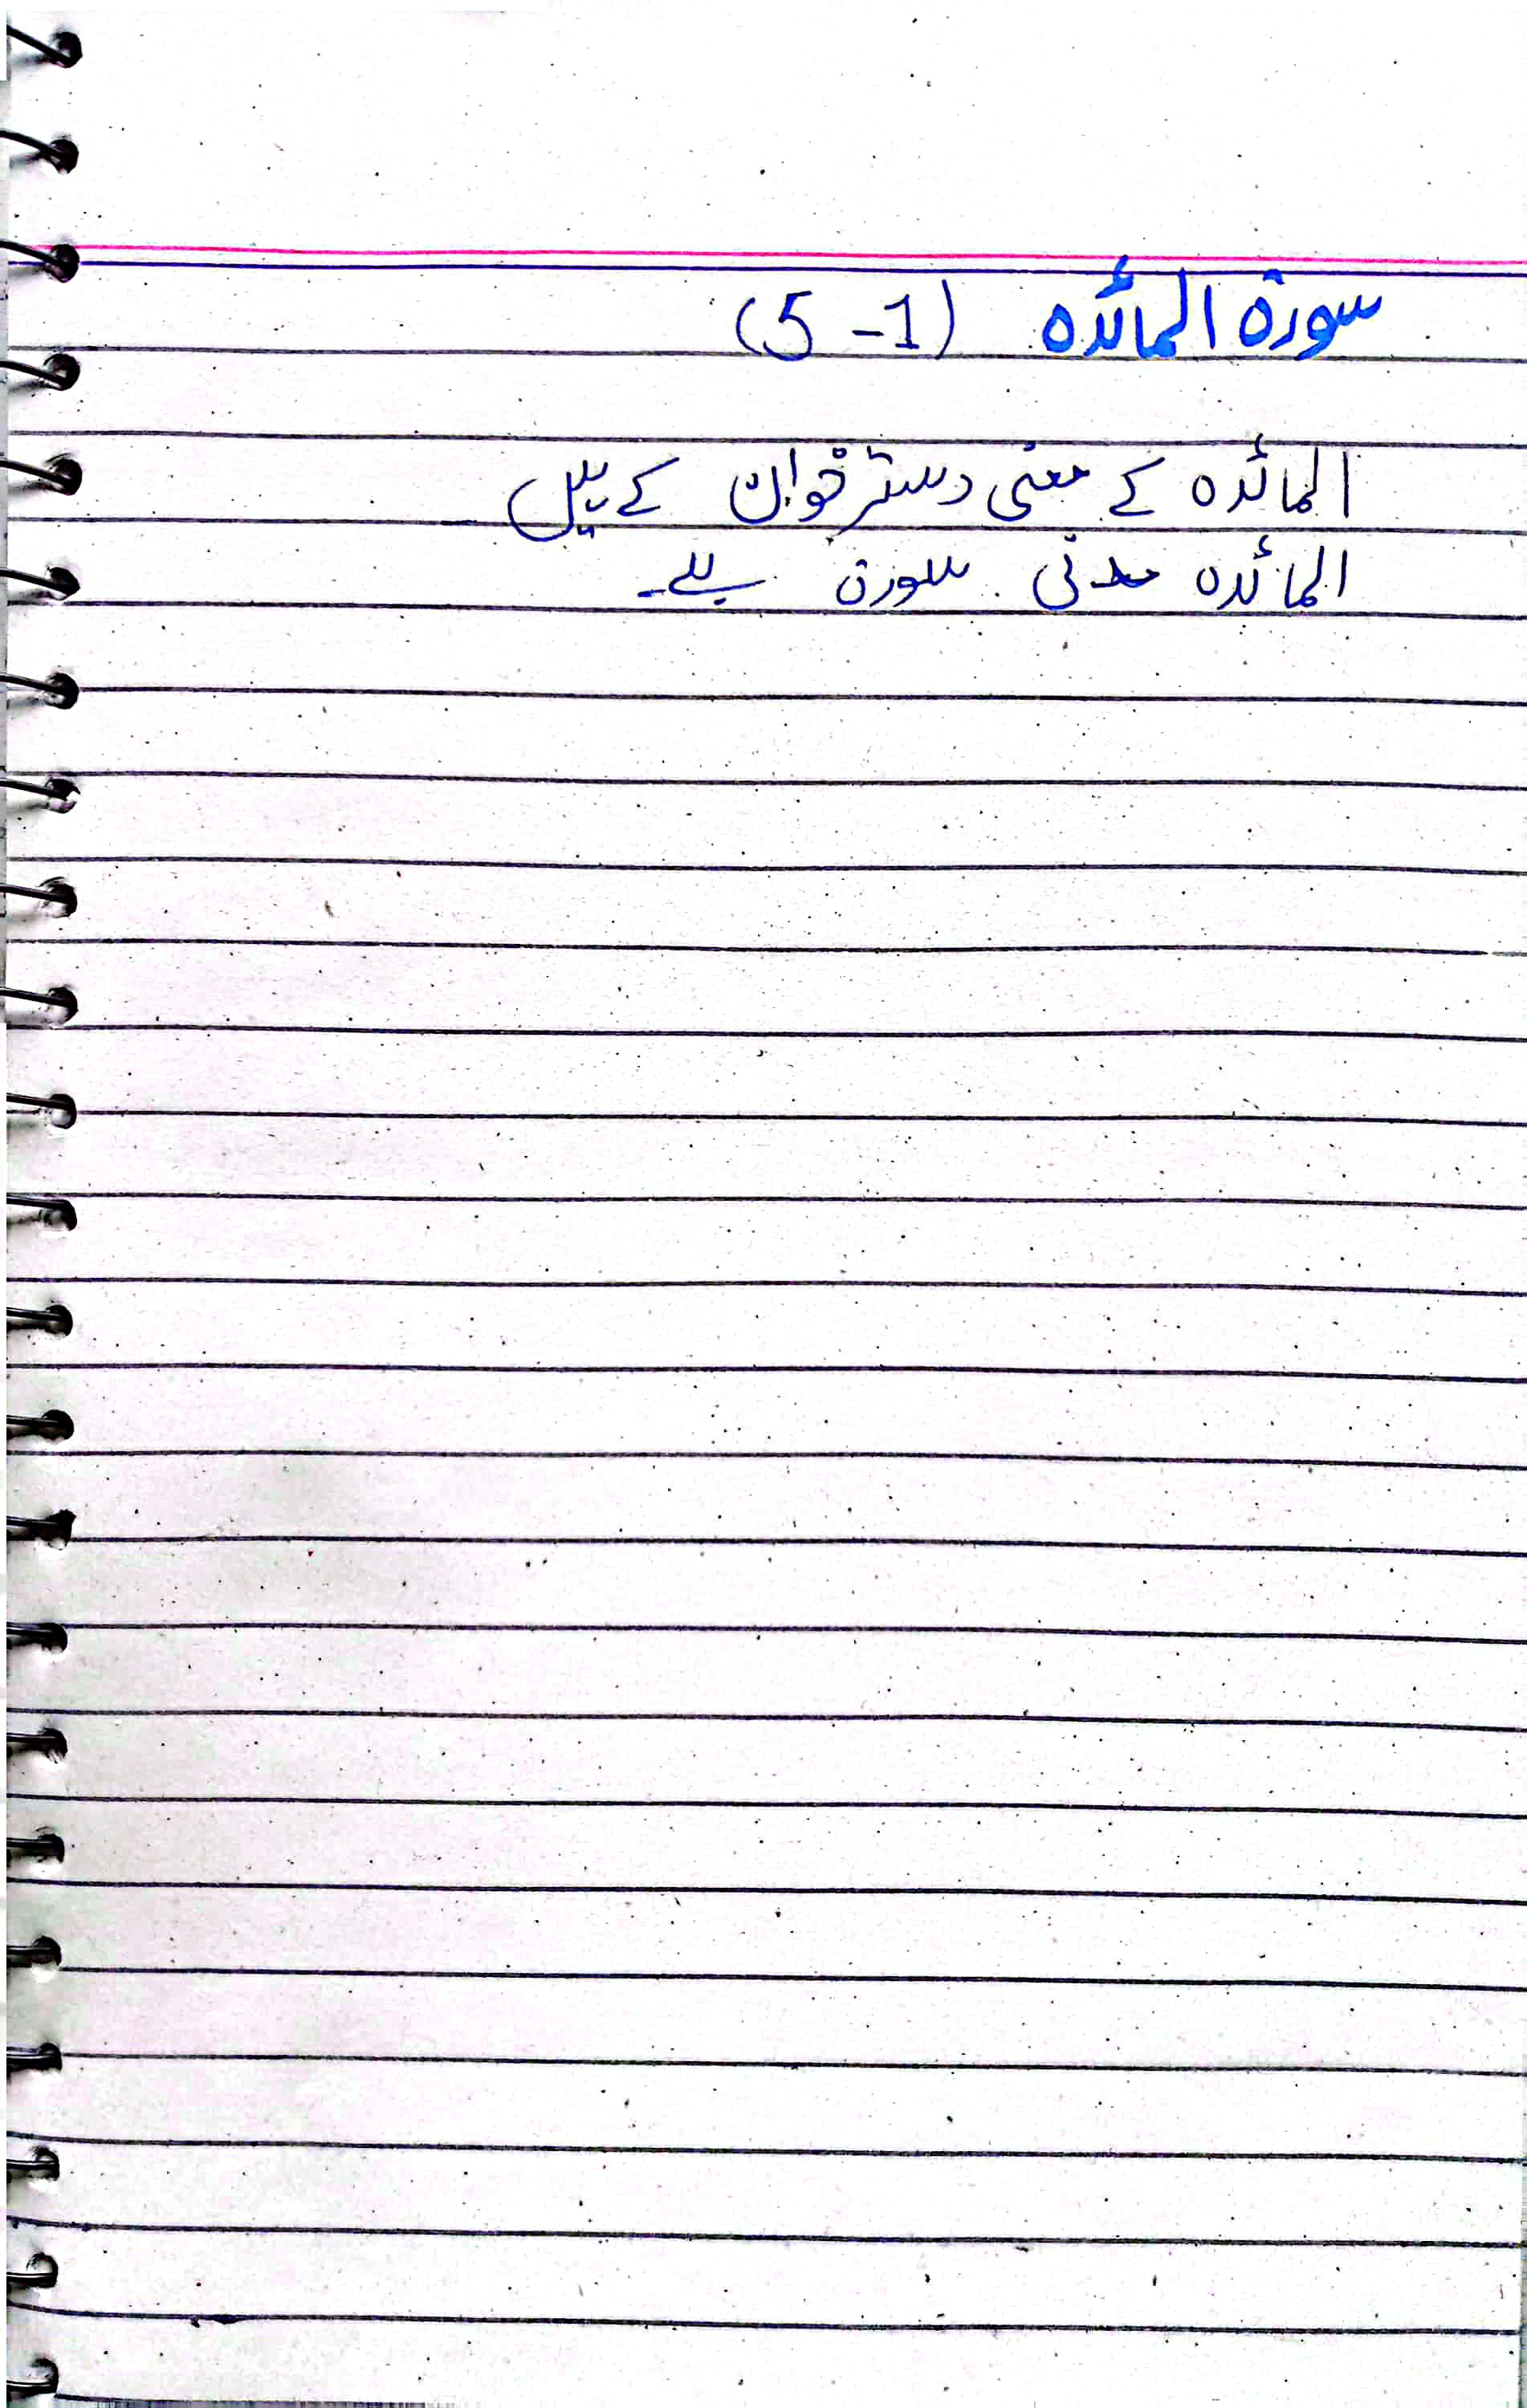 سورة المائدہ (1-5)
المائدہ کے معنی دسترخوان کے ہیں
المائدہ مدنی سورت ہے۔